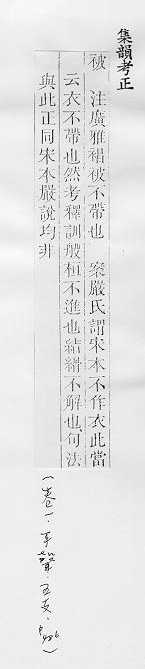 集韻考正
被　注廣雅裮被不帶也　案嚴氏謂宋本不作衣此當
云衣不帶也然考釋訓般桓不進也結縎不解也句法
與此正同宋本嚴說均非
（卷一．平聲．五支．